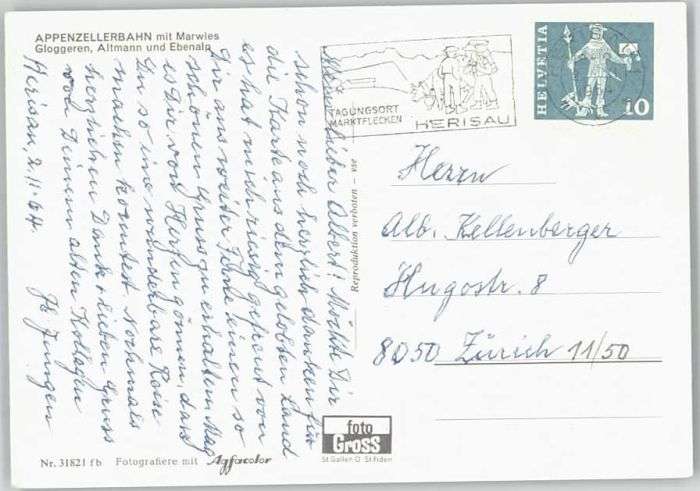 APPENZELLERBAHN mit Marwies
Gloggeren, Altmann und Ebenalp
TAGUNGSORT
MARKTFLECKEN
HERISAU
HELVETIA
10
Mein lieber Albert! Möchte Dir
schon noch herzlich danken für
die Karte aus dem gelobten Land
es hat mich riesig gefreut von
Dir aus weiter Ferne einen so
schönen Gruss zu erhalten. Mag
es Dir von Herzen gönnen, dass
Du so eine wunderbare Reise
machen konntest. Nochmals
herzlichen Dank & lieben Gruss
von Deinem alten Kollegen
Herisau, 2.11.64.
Reproduktion verboten - vse
Herrn
Alb. Kellenberger
Hugostr. 8
8050 Zürich 11/50
foto
Gross
St. Gallen O St. Fiden
Nr. 31821 fb Fotografiere mit Agfacolor